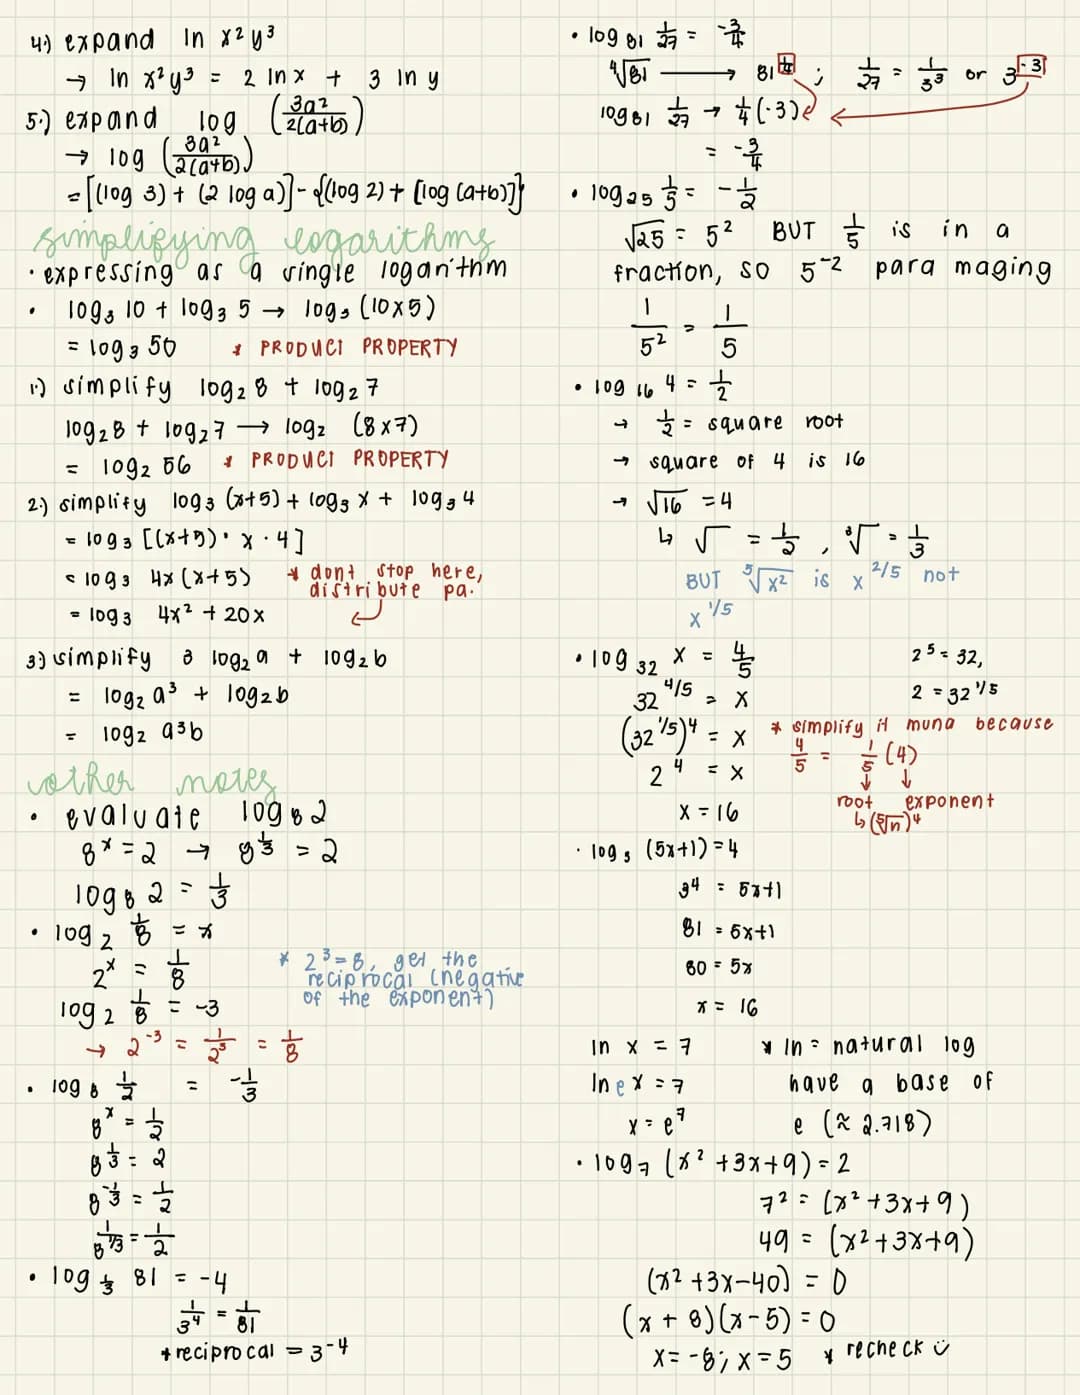 4.) expand ln x² y³
→ ln x² y³ = 2 ln x + 3 ln y
5.) expand log (3a² / 2(a+b))
→ log (3a² / 2(a+b))
= [(log 3) + (2 log a)] - {(log 2) + [log (a+b)]}
simplifying logarithms
• expressing as a single logarithm
• log₃ 10 + log₃ 5 → log₃ (10x5)
= log₃ 50 * PRODUCT PROPERTY
1.) simplify log₂ 8 + log₂ 7
log₂ 8 + log₂ 7 → log₂ (8x7)
= log₂ 56 * PRODUCT PROPERTY
2.) simplify log₃ (x+5) + log₃ x + log₃ 4
= log₃ [(x+5) • x • 4]
= log₃ 4x (x+5) * dont stop here,
distribute pa.
= log₃ 4x² + 20x
3.) simplify 3 log₂ a + log₂ b
= log₂ a³ + log₂ b
= log₂ a³b
other notes
• evaluate log₈ 2
8ˣ = 2 → 8^1/3 = 2
log₈ 2 = 1/3
• log₂ 1/8 = x
2ˣ = 1/8
* 2³ = 8, get the
reciprocal (negative
of the exponent)
log₂ 1/8 = -3
→ 2⁻³ = 1/2³ = 1/8
• log₈ 1/2 = -1/3
8ˣ = 1/2
8^1/3 = 2
8^-1/3 = 1/2
1/8^1/3 = 1/2
• log 1/3 81 = -4
1/3⁴ = 1/81
* reciprocal = 3⁻⁴
• log₈₁ 1/27 = -3/4
⁴√81 → 81^1/4 ; 1/27 = 1/3³ or 3⁻³
log₈₁ 1/27 → 1/4 (-3)
= -3/4
• log₂₅ 1/5 = -1/2
√25 = 5² BUT 1/5 is in a
fraction, so 5⁻² para maging
1/5² = 1/5
• log₁₆ 4 = 1/2
→ 1/2 = square root
→ square of 4 is 16
→ √16 = 4
↳ √ = 1/2 , ³√ = 1/3
BUT ⁵√x² is x^2/5 not
x^1/5
• log₃₂ x = 4/5 2⁵ = 32,
32^4/5 = x 2 = 32^1/5
(32^1/5)⁴ = x * simplify it muna because
2⁴ = x 4/5 = 1/5 (4)
↓ ↓
x = 16 root exponent
↳ (⁵√n)⁴
• log₃ (5x+1) = 4
3⁴ = 5x+1
81 = 5x+1
80 = 5x
x = 16
ln x = 7 * ln = natural log
ln e x = 7 have a base of
x = e⁷ e (≈ 2.718)
• log₇ (x² + 3x + 9) = 2
7² = (x² + 3x + 9)
49 = (x² + 3x + 9)
(x² + 3x - 40) = 0
(x + 8)(x - 5) = 0
x = -8; x = 5 * recheck ☺